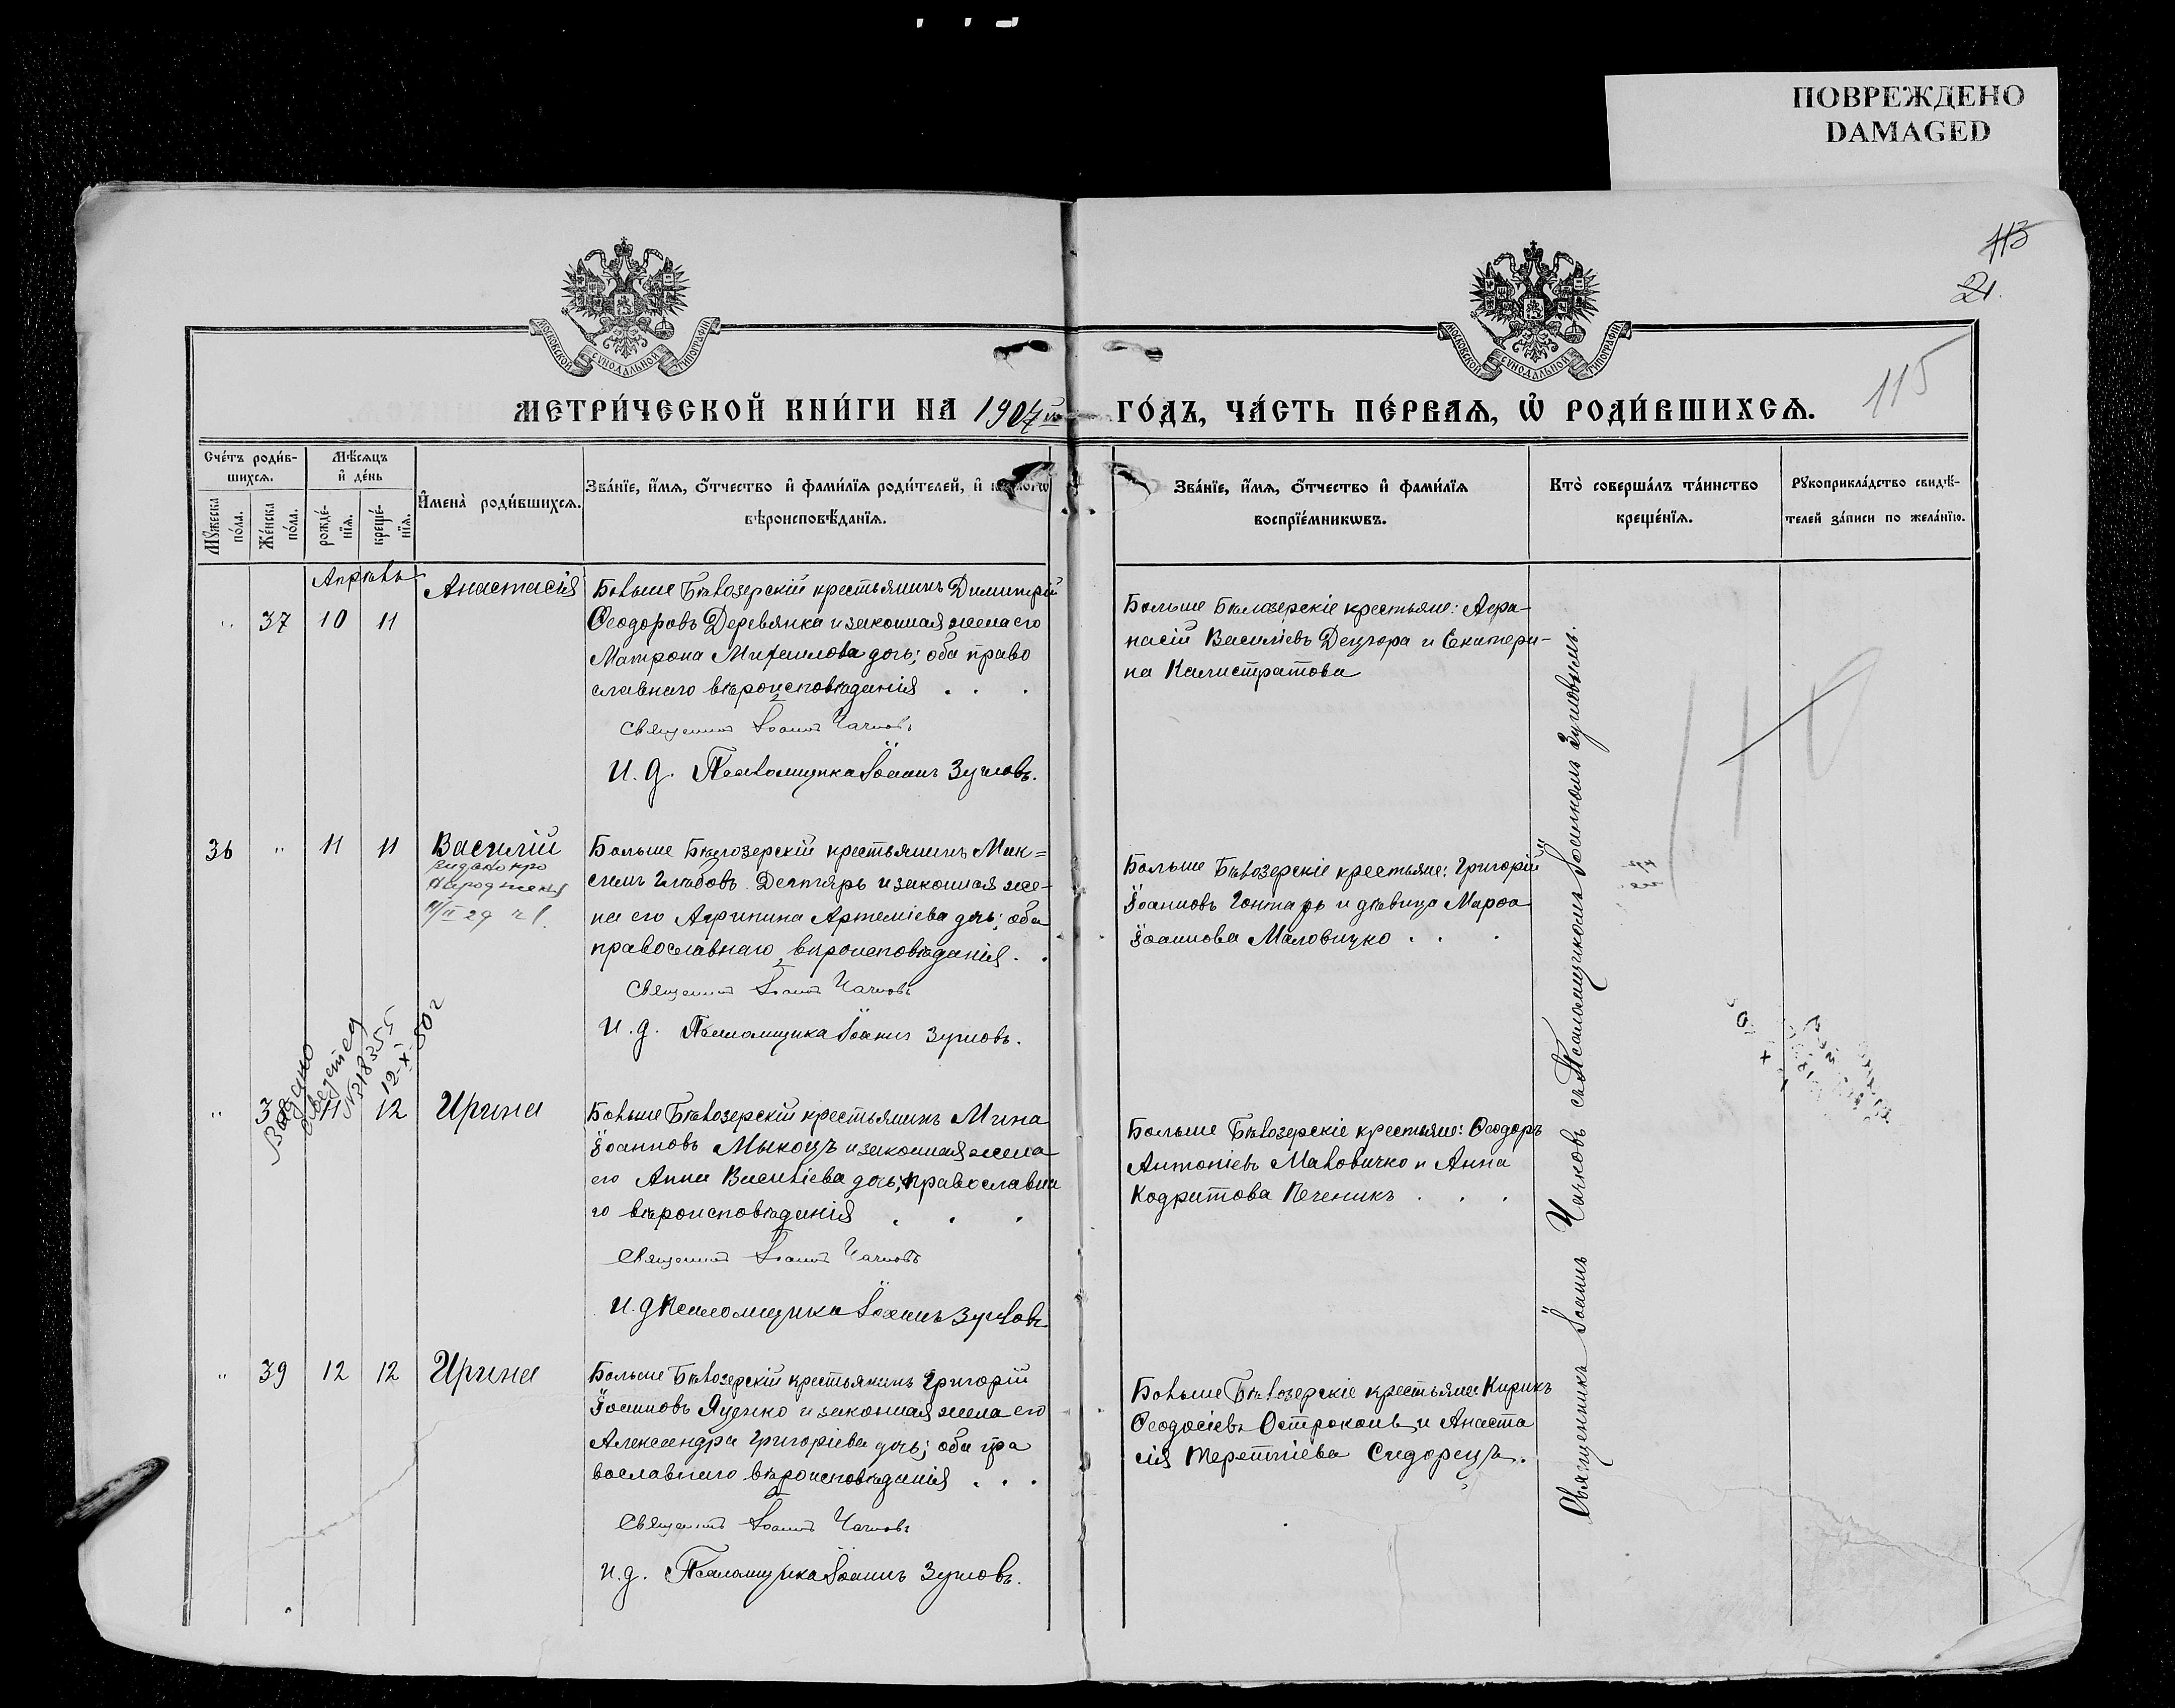 ПОВРЕЖДЕНО
DAMAGED
113
21.
115
МОСКОВСКОЙ СѴНОДАЛЬНОЙ ТИПОГРАФІИ
МОСКОВСКОЙ СѴНОДАЛЬНОЙ ТИПОГРАФІИ
МЕТРИ́ЧЕСКОЙ КНИ́ГИ НА 1907 й ГО́ДЪ, ЧА́СТЬ ПЕ́РВАѦ, Ѡ҆ РОДИ́ВШИХСѦ.
Сче́тъ роди́в-
шихсѧ.
Мꙋ́жеска по́ла.
Же́нска по́ла.
Мѣ́сѧцъ
и҆ де́нь
рожде́-
нїѧ.
креще́-
нїѧ.
И҆мена̀ роди́вшихсѧ.
Зва́нїе, и҆́мѧ, ѻ҆́тчество и҆ фами́лїѧ роди́телей, и҆ како́гѡ
вѣроисповѣ́данїѧ.
Зва́нїе, и҆́мѧ, ѻ҆́тчество и҆ фами́лїѧ
воспрїе́мникѡвъ.
Кто̀ соверша́лъ та́инство
креще́нїѧ.
Рꙋкоприкла́дство свидѣ́-
телей за́писи по жела́нїю.
Апрѣль
" 37 10 11 Анастасія
Больше Бѣлозерскій крестьянинъ Димитрій
Ѳеодоровъ Деревянка и законная жена его
Матрона Михаилова дочь; оба право
славнаго вѣроисповѣданія . . .
Священникъ Іоаннъ Чачковъ
И. д. Псаломщика Іоаннъ Зуиловъ.
Больше Бѣлозерскіе крестьяне: Аѳа-
насій Васильевъ Децюра и Екатери-
на Калистратова
36 " 11 11 Василій
Видано про
Народження
29
Больше Бѣлозерскій крестьянинъ Мак=
симъ Глѣбовъ Дехтярь и законная же-
на его Агрипина Артеміева дочь; оба
православнаго вѣроисповѣданія. .
Священникъ Іоаннъ Чачковъ
И. д. Псаломщика Іоаннъ Зуиловъ.
Больше Бѣлозерскіе крестьяне: Григорій
Іоанновъ Гонтарь и дѣвица Марѳа
Іоаннова Маловичко . . .
Видано
сведетел
№ 318355
12-X-50 г
" 38 11 12 Ирина
Больше Бѣлозерскій крестьянинъ Мина
Іоанновъ Мыкоцъ и законная жена
его Анна Васильева дочь; православна
го вѣроисповѣданія . . .
Священникъ Іоаннъ Чачковъ
И. д Псаломщика Іоаннъ Зуиловъ
Больше Бѣлозерскіе крестьяне: Ѳеодоръ
Антоніевъ Маловичко и Анна
Кодратова Печеникъ . . .
" 39 12 12 Ирина
Больше Бѣлозерскій крестьянинъ Григорій
Іоанновъ Яценко и законная жена его
Александра Григоріева дочь; оба пра
вославнаго вѣроисповѣданія . . .
Священникъ Іоаннъ Чачковъ
И. д. Псаломщика Іоаннъ Зуиловъ.
Больше Бѣлозерскіе крестьяне Кирикъ
Ѳеодосіевъ Остроконь и Анаста
сія Терентіева Сидорецъ.
Священника Іоаннъ Чачковъ съ Псаломщикомъ Іоанномъ Зуиловымъ.